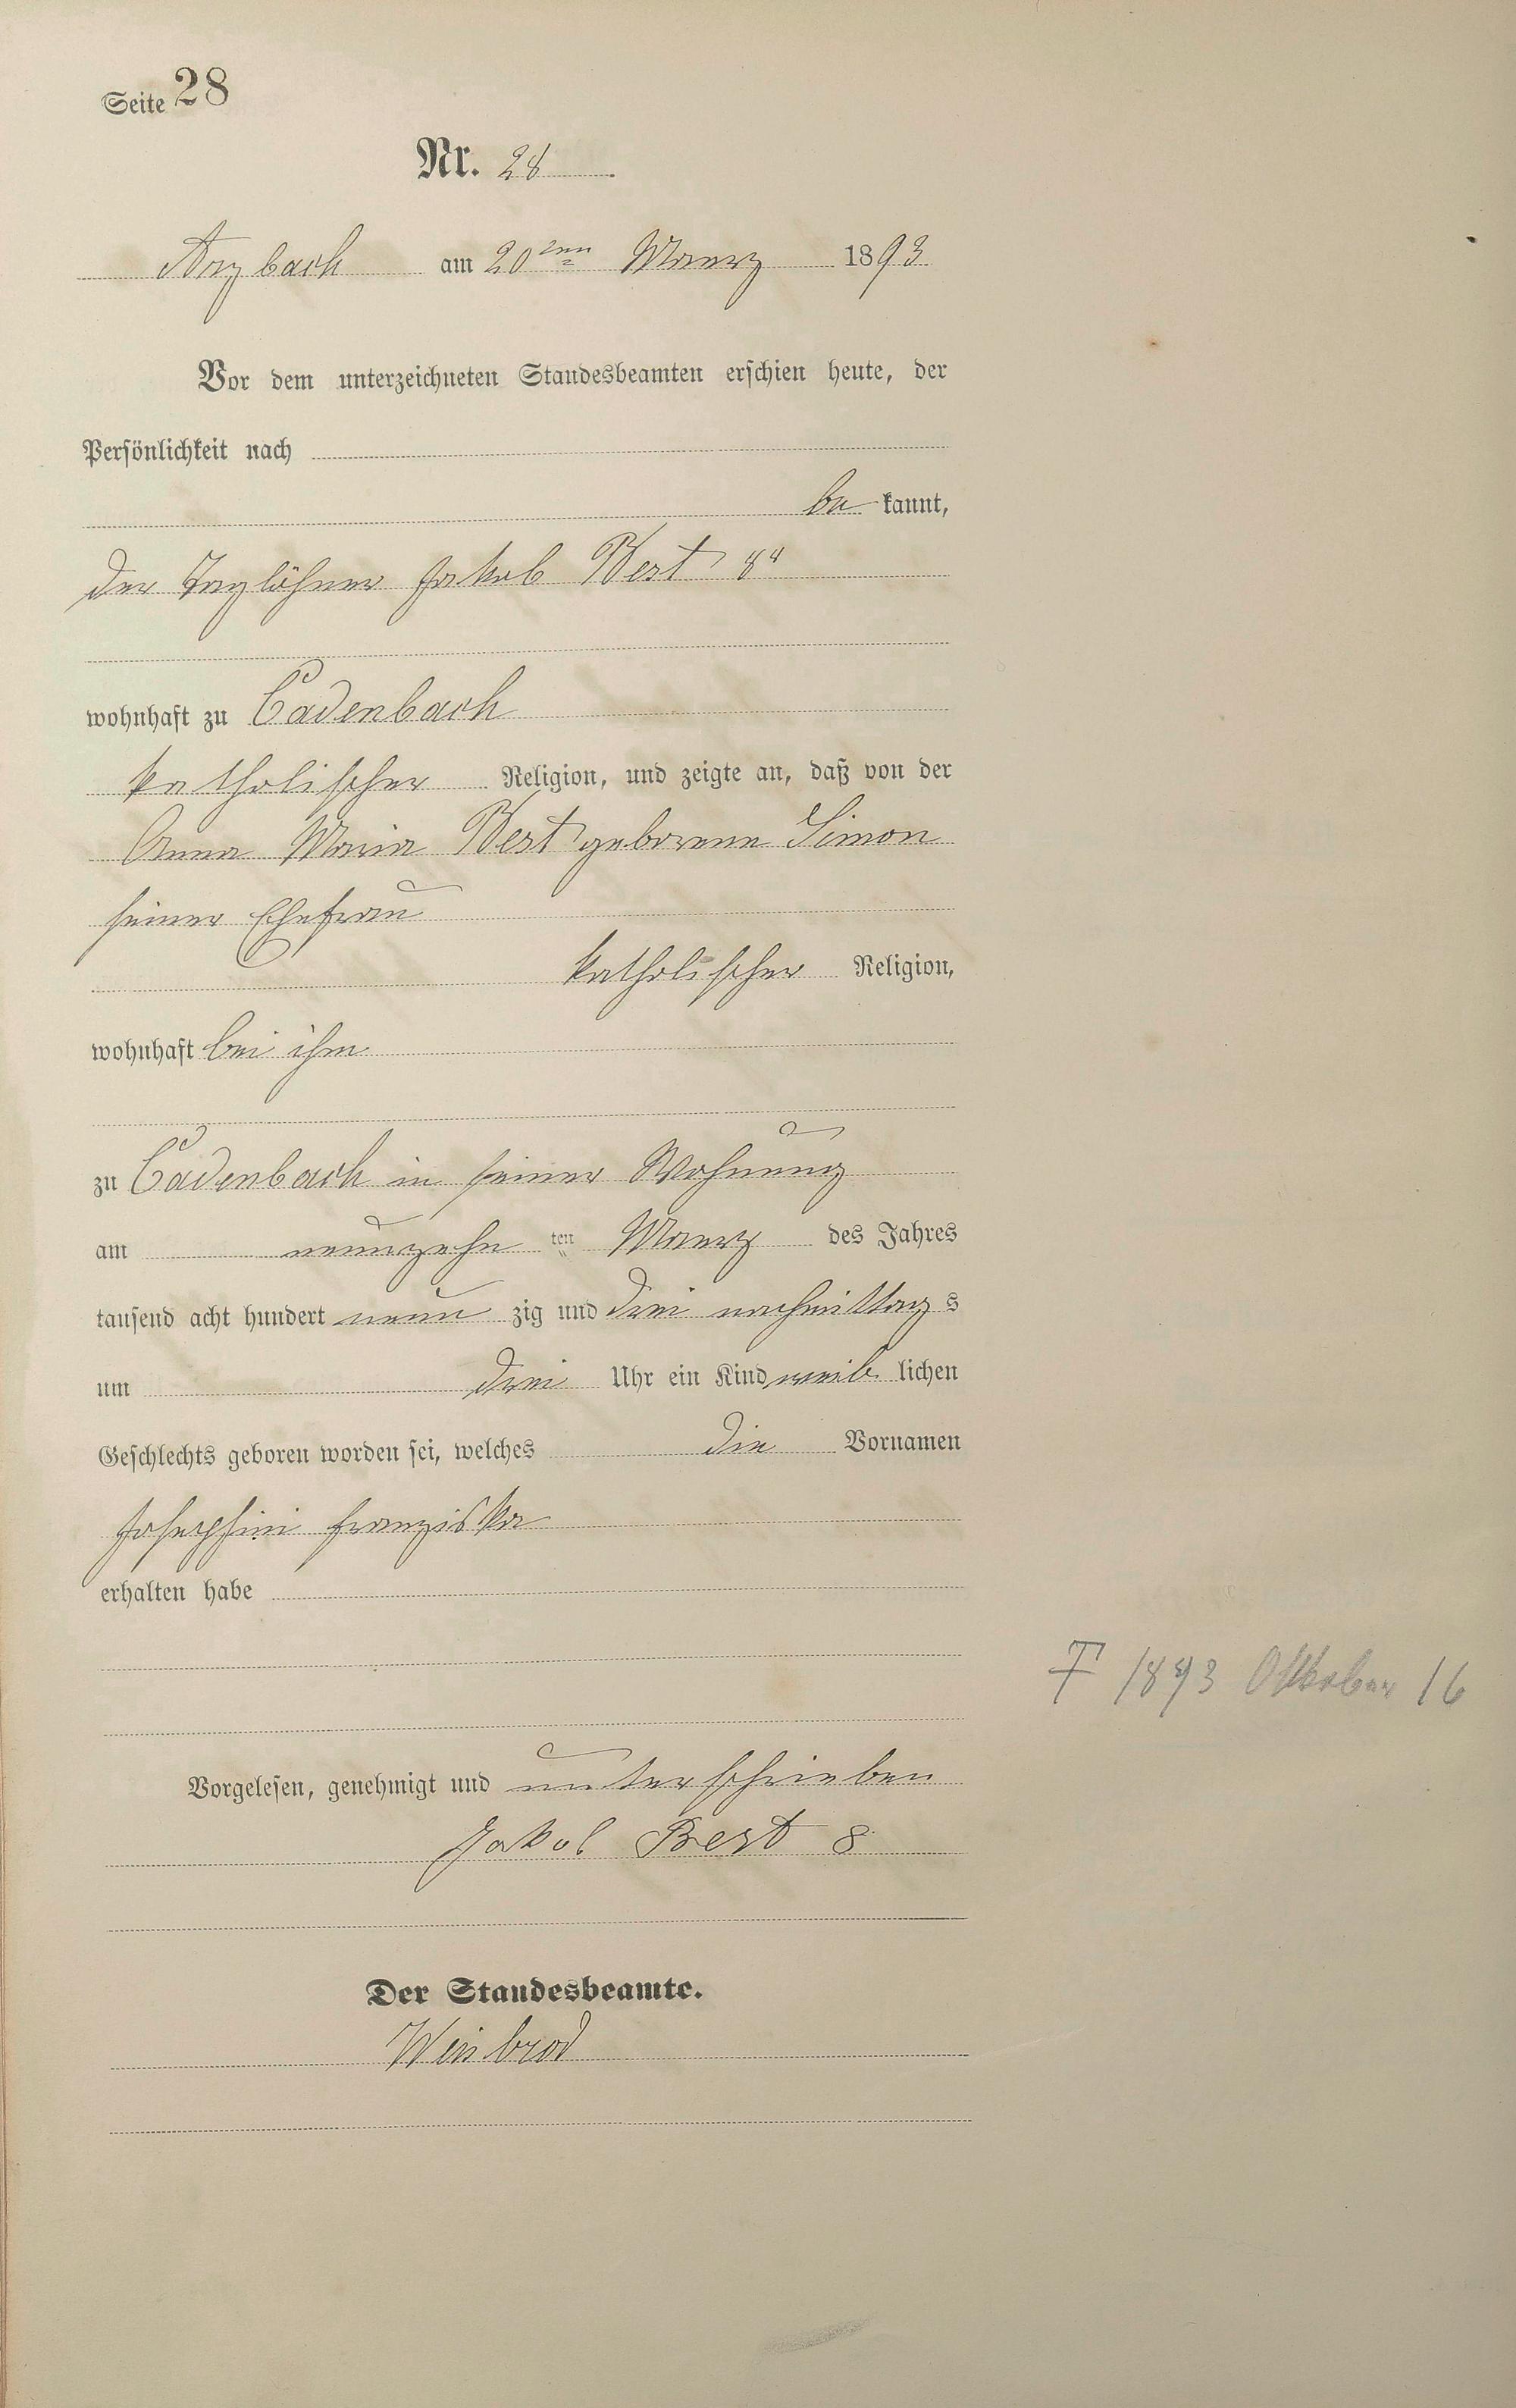 Seite 28
Nr. 28
Arzbach am 20ten Maerz 1893
Vor dem unterzeichneten Standesbeamten erschien heute, der
Persönlichkeit nach
be kannt,
der Taglöhner Jakob Best 8ter
wohnhaft zu Cadenbach
katholischer Religion, und zeigte an, daß von der
Anna Maria Best geborene Simon
seiner Ehefrau
katholischer Religion,
wohnhaft bei ihm
zu Cadenbach in seiner Wohnung
am neunzehn ten Maerz des Jahres
tausend acht hundert neun zig und drei nachmittags
um drei Uhr ein Kind weib lichen
Geschlechts geboren worden sei, welches die Vornamen
Josephine Franziska
erhalten habe
† 1893 Oktober 16
Vorgelesen, genehmigt und unterschrieben
Jakob Best 8
Der Standesbeamte.
Weisbrod